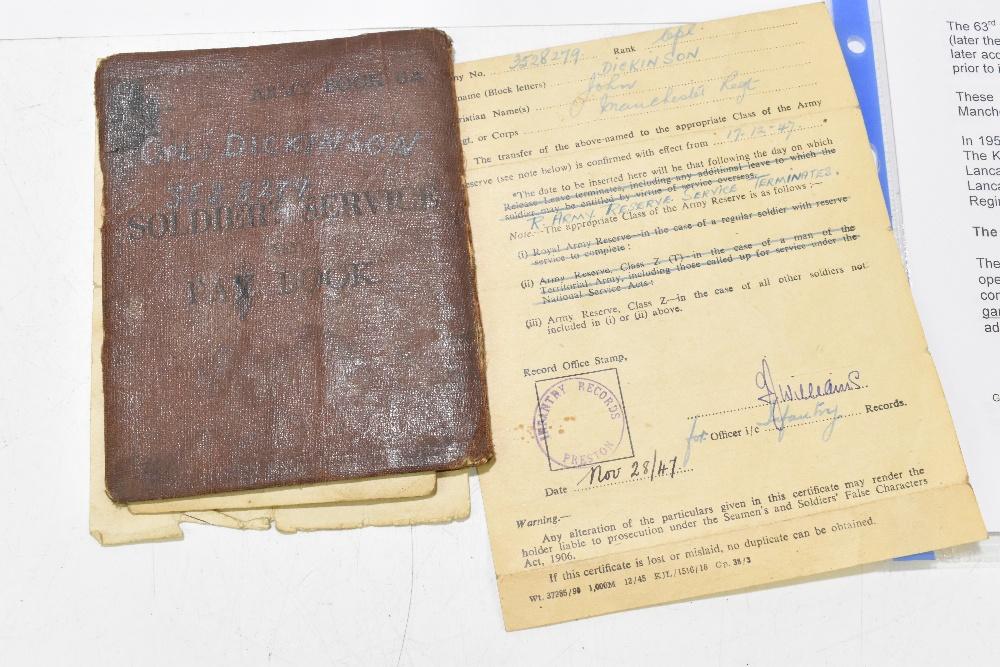 ARMY BOOK 64
CPL. DICKINSON
3528279
SOLDIER'S SERVICE
PAY BOOK
ny No. 3528279. Rank Cpl.
name (Block letters) DICKINSON
ristian Name(s) John
gt. or Corps Manchester Regt
The transfer of the above-named to the appropriate Class of the Army
serve (see note below) is confirmed with effect from 17-12-47.*
*The date to be inserted here will be that following the day on which
Release Leave terminates, including any additional leave to which the
soldier may be entitled by virtue of service overseas.
R. ARMY RESERVE SERVICE TERMINATES.
Note.—The appropriate Class of the Army Reserve is as follows :—
(i) Royal Army Reserve—in the case of a regular soldier with reserve
service to complete :
(ii) Army Reserve, Class Z (T)—in the case of a man of the
Territorial Army, including those called up for service under the
National Service Acts :
(iii) Army Reserve, Class Z—in the case of all other soldiers not
included in (i) or (ii) above.
Record Office Stamp,
INFANTRY RECORDS
PRESTON
Williams
for Officer i/c Infantry Records.
Date Nov 28/47
Warning.—
Any alteration of the particulars given in this certificate may render the
holder liable to prosecution under the Seamen's and Soldiers' False Characters
Act, 1906.
If this certificate is lost or mislaid, no duplicate can be obtained.
Wt. 37285/90 1,000M 12/45 KJL/1516/16 Gp. 38/3
The 63rd
(later the
later acc
prior to i
These
Manche
In 195
The K
Lanca
Lanca
Regim
The
The
ope
con
gar
ad